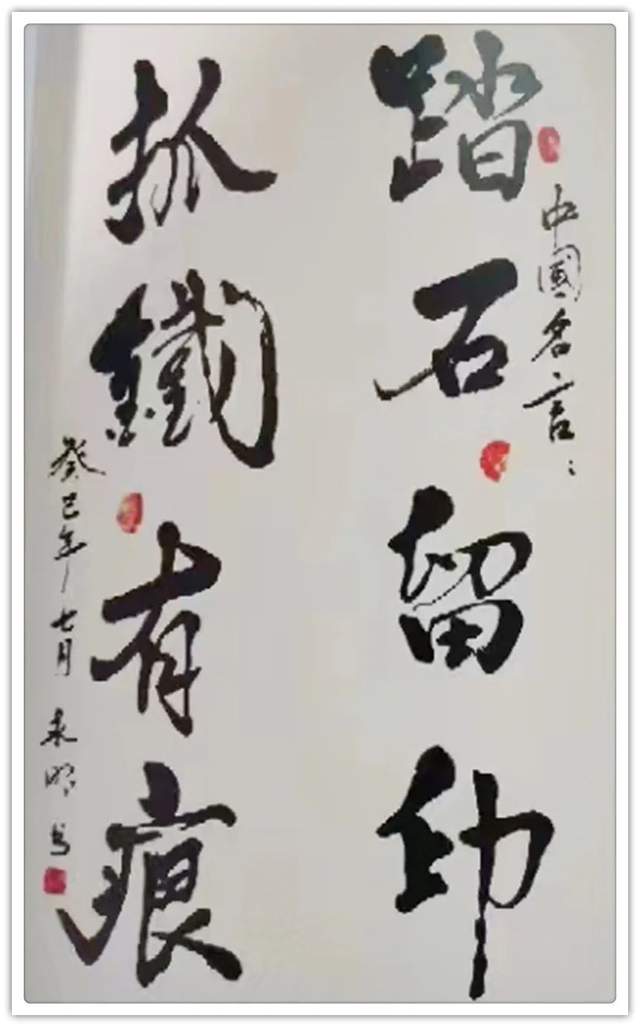 中國名言:
踏石留印
抓鐵有痕
癸巳年七月
书